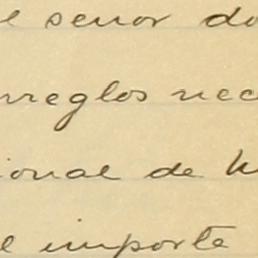 el señor do
rreglos nec
ional de M
el importe